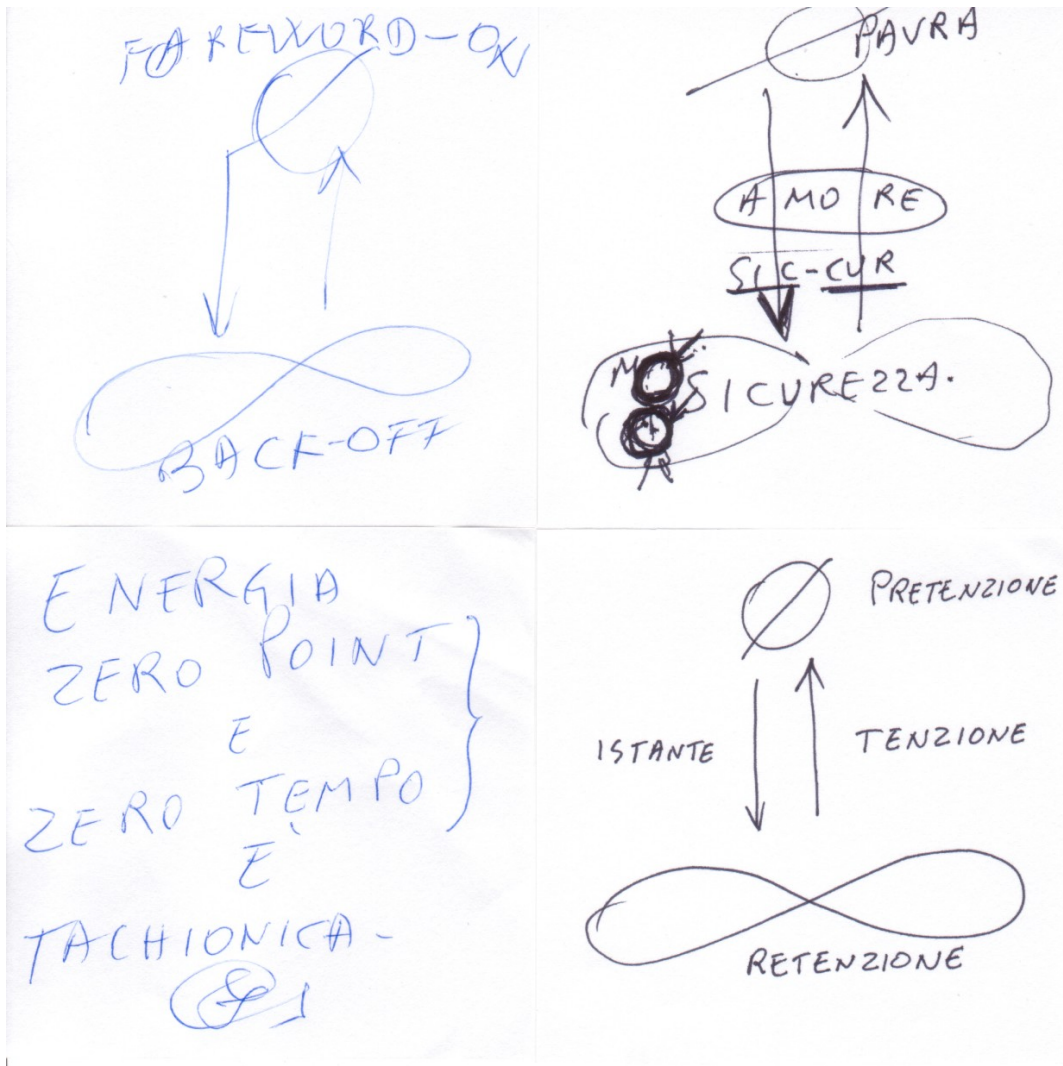 FAREWORD-ON
BACK-OFF
PAVRA
A MO RE
SIC-CUR
M
SICUREZZA.
ENERGIA
ZERO POINT
E
ZERO TEMPO
È
TACHIONICA-
PRETENZIONE
ISTANTE
TENZIONE
RETENZIONE